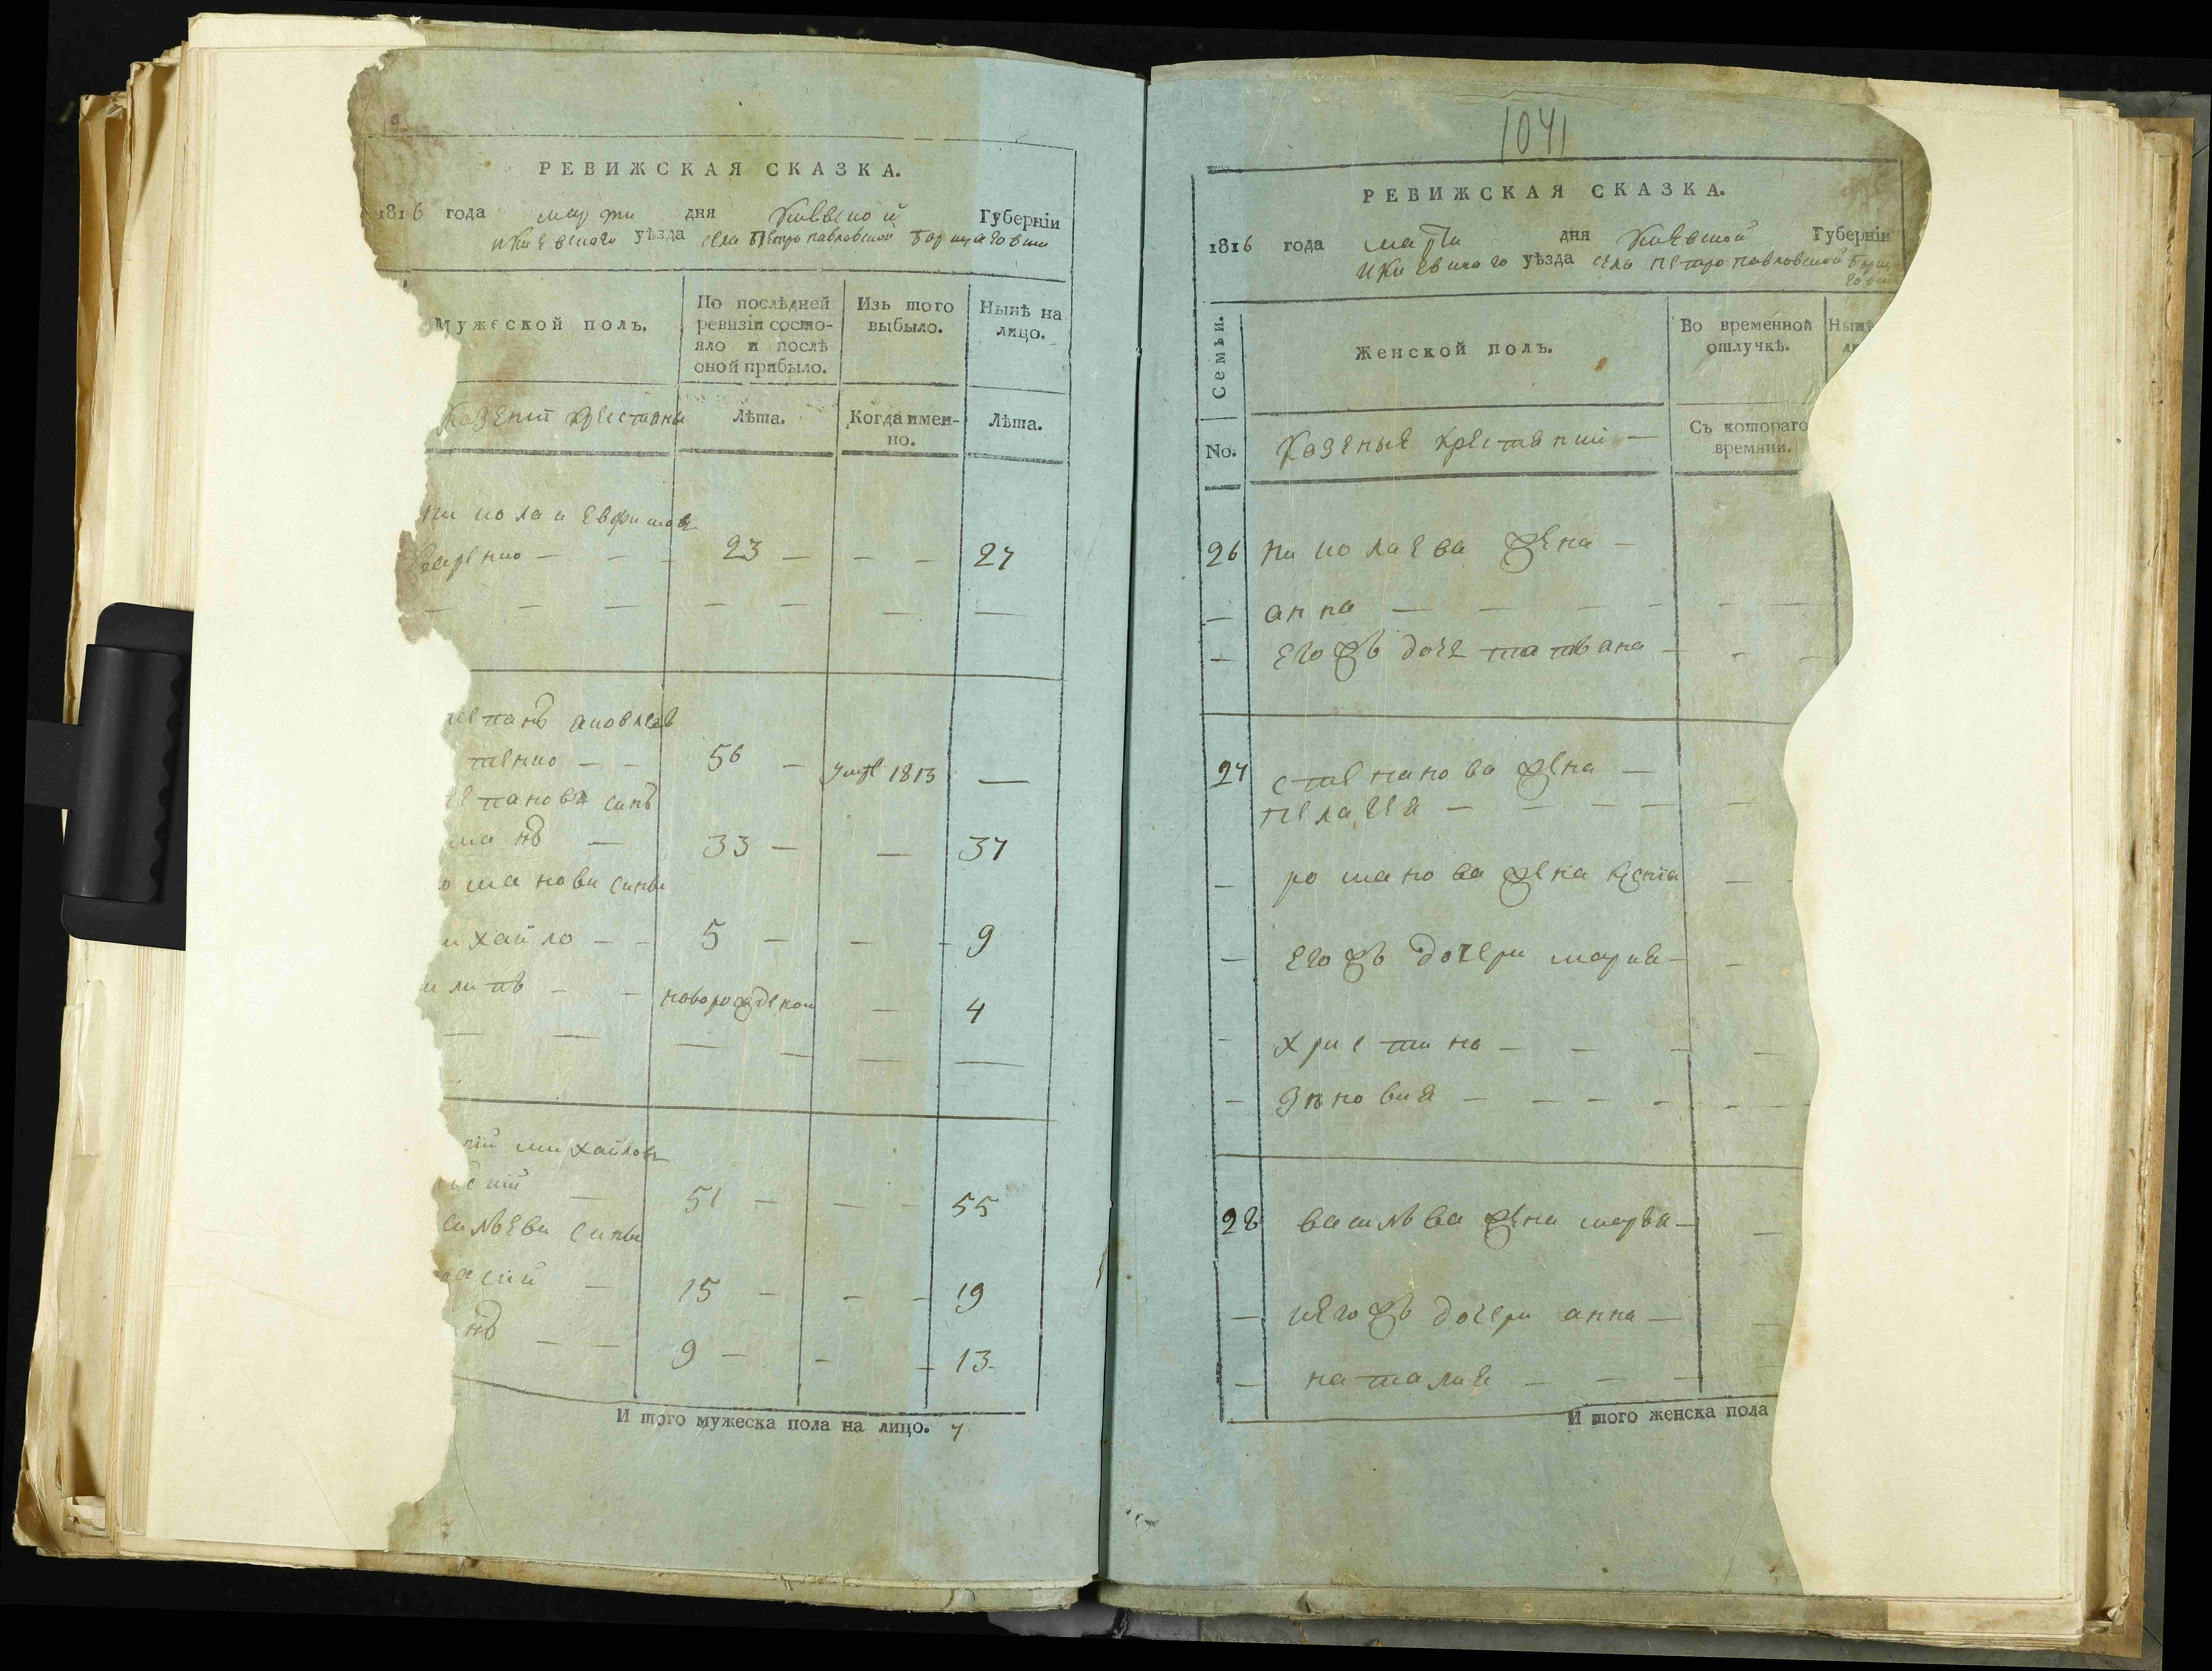 19
РЕВИЖСКАЯ СКАЗКА.
1816 года марта дня Киевской Губерніи
и Киевскаго уѣзда села Петропавловской Борщаговки
Мужеской полъ.
По послѣдней ревизіи состо-
яло и послѣ
оной прибыло.
Изъ того
выбыло.
Нынѣ на
лицо.
Казеніи крестяны
Лѣта.
Когда имен-
но.
Лѣта.
николаи Евфимовъ
23 — — — 27
степанъ яковлевъ
тенко — — 56 — умре 1813 —
тепановъ синъ
манъ — 33 — — 37
оманови сины
ихаило — — 5 — — 9
илипъ — — новорожденой — 4
ній михаиловъ
51 — — — 55
силѣеви сины
асіи — 15 — — — 19
нъ — — 9 — — — 13
И того мужеска пола на лицо. 7
1041
РЕВИЖСКАЯ СКАЗКА.
1816 года марта дня Киевской Губерніи
и Киевскаго уѣзда села Петропавловской Борща
говки
Семьи.
Женской полъ.
Во временной
отлучкѣ.
Нынѣ
No.
Казеные крестянки —
Съ котораго
времяни.
26 николаева жена —
— анна — — — —
— Егожъ дочь татяна —
27 степанова жена —
пелагея — — — —
— романова жена ксенія —
— Егожъ дочери мария —
— християна — — —
— зѣновия — — — —
28 василѣва жена марья —
— иЯгожъ дочери анна —
— наталия — — —
И того женска пола